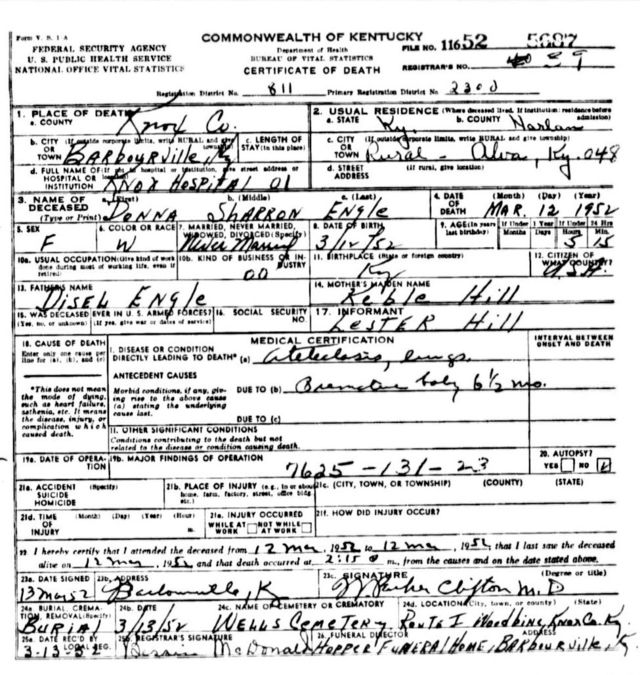 Form V. S. 1 A
COMMONWEALTH OF KENTUCKY
FEDERAL SECURITY AGENCY
U. S. PUBLIC HEALTH SERVICE
NATIONAL OFFICE VITAL STATISTICS
Department of Health
BUREAU OF VITAL STATISTICS
CERTIFICATE OF DEATH
FILE NO. 11652 5687
REGISTRAR'S NO. 89
Registration District No. 811 Primary Registration District No. 2300
1. PLACE OF DEATH
a. COUNTY Knox Co.
2. USUAL RESIDENCE (Where deceased lived. If institution: residence before admission)
a. STATE Ky. b. COUNTY Harlan
b. CITY (If outside corporate limits, write RURAL and give township) OR TOWN Barbourville, Ky
c. LENGTH OF STAY (in this place)
c. CITY (If outside corporate limits, write RURAL and give township) OR TOWN Rural - Alva, Ky. 048
d. FULL NAME OF (If not in hospital or institution, give street address or location) HOSPITAL OR INSTITUTION Knox Hospital 01
d. STREET ADDRESS (If rural, give location)
3. NAME OF DECEASED (Type or Print) a. (First) b. (Middle) c. (Last)
Donna Sharron Engle
4. DATE OF DEATH (Month) (Day) (Year)
Mar. 12 1952
5. SEX F
6. COLOR OR RACE W
7. MARRIED, NEVER MARRIED, WIDOWED, DIVORCED (Specify) Never Married
8. DATE OF BIRTH 3/12/52
9. AGE (In years last birthday) If Under 1 Year Months Days If Under 24 Hrs. Hours Min. 5 15
10a. USUAL OCCUPATION (Give kind of work done during most of working life, even if retired)
10b. KIND OF BUSINESS OR INDUSTRY 00
11. BIRTHPLACE (State or foreign country) Ky
12. CITIZEN OF WHAT COUNTRY? USA
13. FATHER'S NAME
Engle
14. MOTHER'S MAIDEN NAME
Hill
15. WAS DECEASED EVER IN U. S. ARMED FORCES? (Yes, no, or unknown) (If yes, give war or dates of service)
16. SOCIAL SECURITY NO.
17. INFORMANT
Lester Hill
18. CAUSE OF DEATH
Enter only one cause per line for (a), (b), and (c)
MEDICAL CERTIFICATION
INTERVAL BETWEEN ONSET AND DEATH
I. DISEASE OR CONDITION DIRECTLY LEADING TO DEATH* (a) lungs
*This does not mean the mode of dying, such as heart failure, asthenia, etc. It means the disease, injury, or complication which caused death.
ANTECEDENT CAUSES
Morbid conditions, if any, giving rise to the above cause (a) stating the underlying cause last.
DUE TO (b) baby 6 1/2 mo.
DUE TO (c)
II. OTHER SIGNIFICANT CONDITIONS
Conditions contributing to the death but not related to the disease or condition causing death.
19a. DATE OF OPERATION
19b. MAJOR FINDINGS OF OPERATION
7625-131-23
20. AUTOPSY?
YES NO
21a. ACCIDENT SUICIDE HOMICIDE (Specify)
21b. PLACE OF INJURY (e.g., in or about home, farm, factory, street, office bldg. etc.)
21c. (CITY, TOWN, OR TOWNSHIP) (COUNTY) (STATE)
21d. TIME OF INJURY (Month) (Day) (Year) (Hour)
21e. INJURY OCCURRED
WHILE AT WORK NOT WHILE AT WORK
21f. HOW DID INJURY OCCUR?
22. I hereby certify that I attended the deceased from 12 Mar, 1952 to 12 Mar, 1952, that I last saw the deceased
alive on 12 Mar, 1952 and that death occurred at 2:15 m., from the causes and on the date stated above.
23a. DATE SIGNED 13 Mar 52
23b. ADDRESS Barbourville, K
23c. SIGNATURE (Degree or title)
Clifton M.D
24a. BURIAL, CREMATION, REMOVAL (Specify) Burial
24b. DATE 3/13/52
24c. NAME OF CEMETERY OR CREMATORY Wells Cemetery
24d. LOCATION (City, town, or county) (State) Route 1 Woodbine, Knox Co. Ky.
25a. DATE REC'D BY LOCAL REG. 3-13-52
25b. REGISTRAR'S SIGNATURE McDonald
26. FUNERAL DIRECTOR ADDRESS
Hopper Funeral Home, Barbourville, Ky